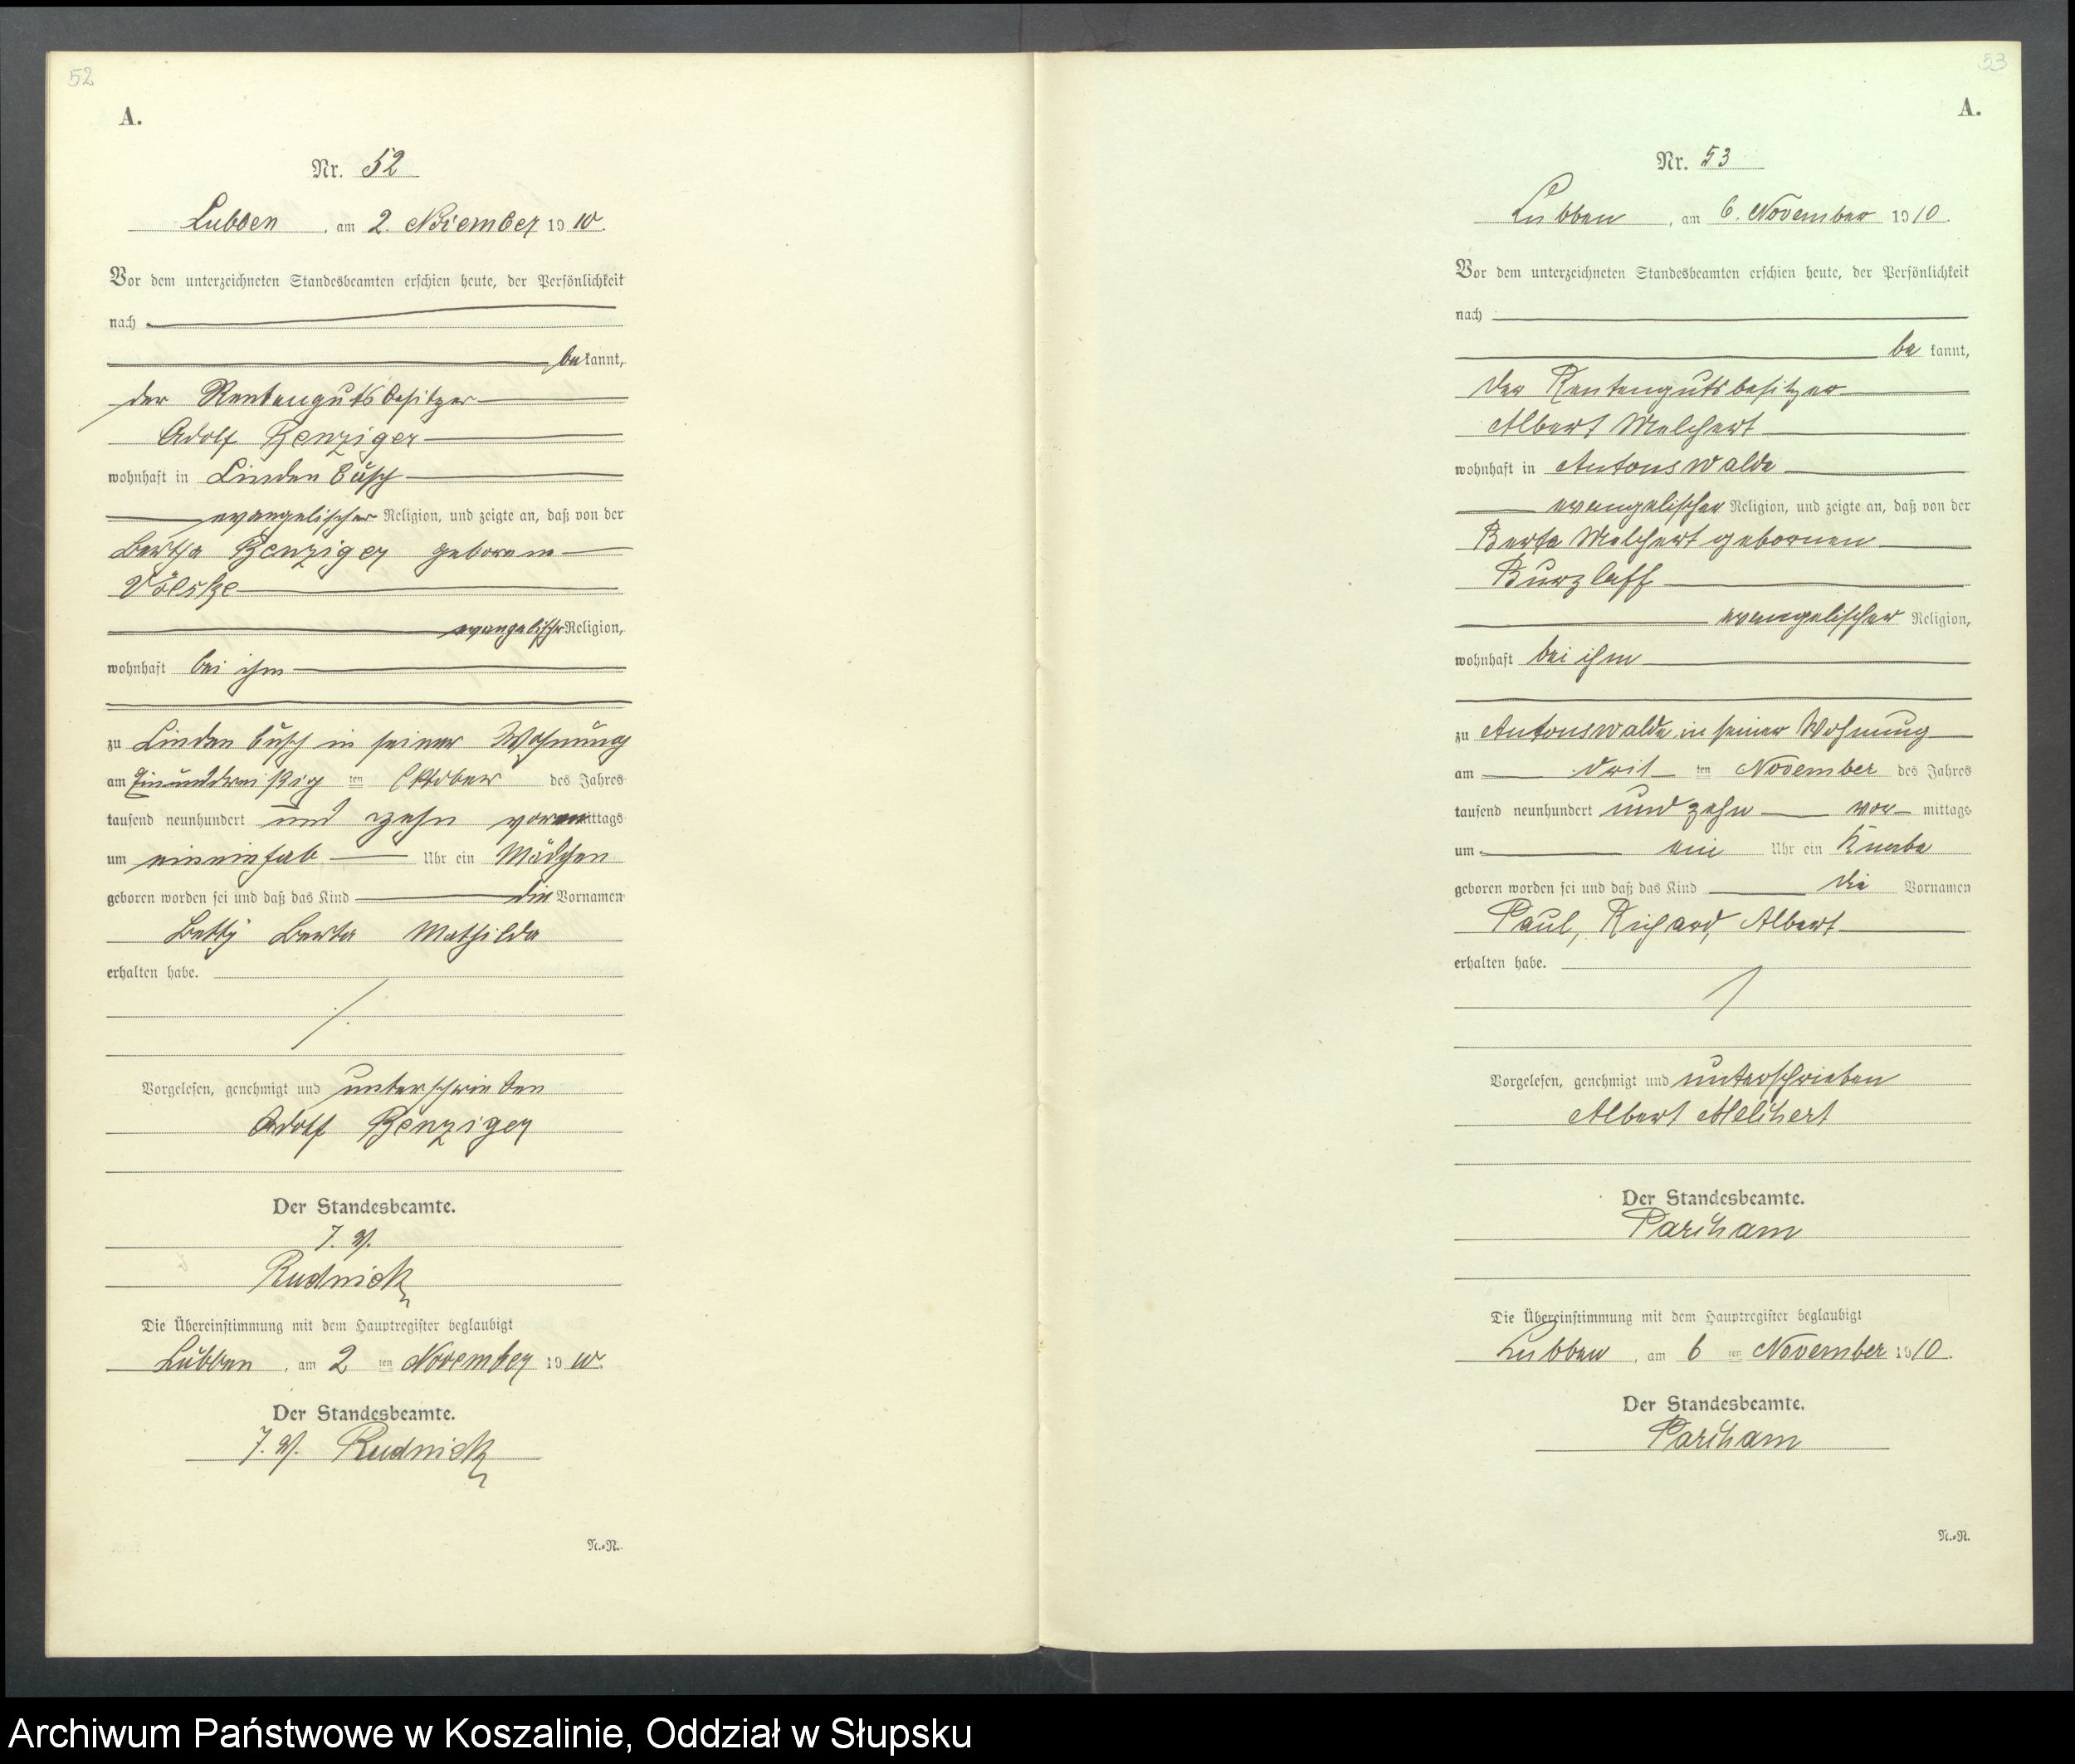 52
A.
Nr. 52
Lubben, am 2. November 1910.
Vor dem unterzeichneten Standesbeamten erschien heute, der Persönlichkeit
nach
bekannt,
der Rentengutsbesitzer
Adolf Benziger
wohnhaft in Lindenbusch
evangelischer Religion, und zeigte an, daß von der
Bertha Benziger geborene
Völske
evangelischer Religion,
wohnhaft bei ihm
zu Lindenbusch in seiner Wohnung
am Einunddreißigten Oktober des Jahres
tausend neunhundert und zehn vormittags
um eineinhalb Uhr ein Mädchen
geboren worden sei und daß das Kind die Vornamen
Betty Berta Mathilda
erhalten habe.
Vorgelesen, genehmigt und unterschrieben
Adolf Benziger
Der Standesbeamte.
J. V.
Rudnick
Die Übereinstimmung mit dem Hauptregister beglaubigt
Lubben, am 2 ten November 1910.
Der Standesbeamte.
J. V. Rudnick
N.=R.
53
A.
Nr. 53
Lubben, am 6. November 1910.
Vor dem unterzeichneten Standesbeamten erschien heute, der Persönlichkeit
nach
bekannt,
der Rentengutsbesitzer
Albert Melchert
wohnhaft in Antonswalde
evangelischer Religion, und zeigte an, daß von der
Berta Melchert gebornen
Burzlaff
evangelischer Religion,
wohnhaft bei ihm
zu Antonswalde, in seiner Wohnung
am drit ten November des Jahres
tausend neunhundert und zehn vor mittags
um ein Uhr ein Knabe
geboren worden sei und daß das Kind die Vornamen
Paul, Richard, Albert
erhalten habe.
Vorgelesen, genehmigt und unterschrieben
Albert Melchert
Der Standesbeamte.
Parcham
Die Übereinstimmung mit dem Hauptregister beglaubigt
Lubben, am 6 ten November 1910.
Der Standesbeamte.
Parcham
N.=R.
Archiwum Państwowe w Koszalinie, Oddział w Słupsku